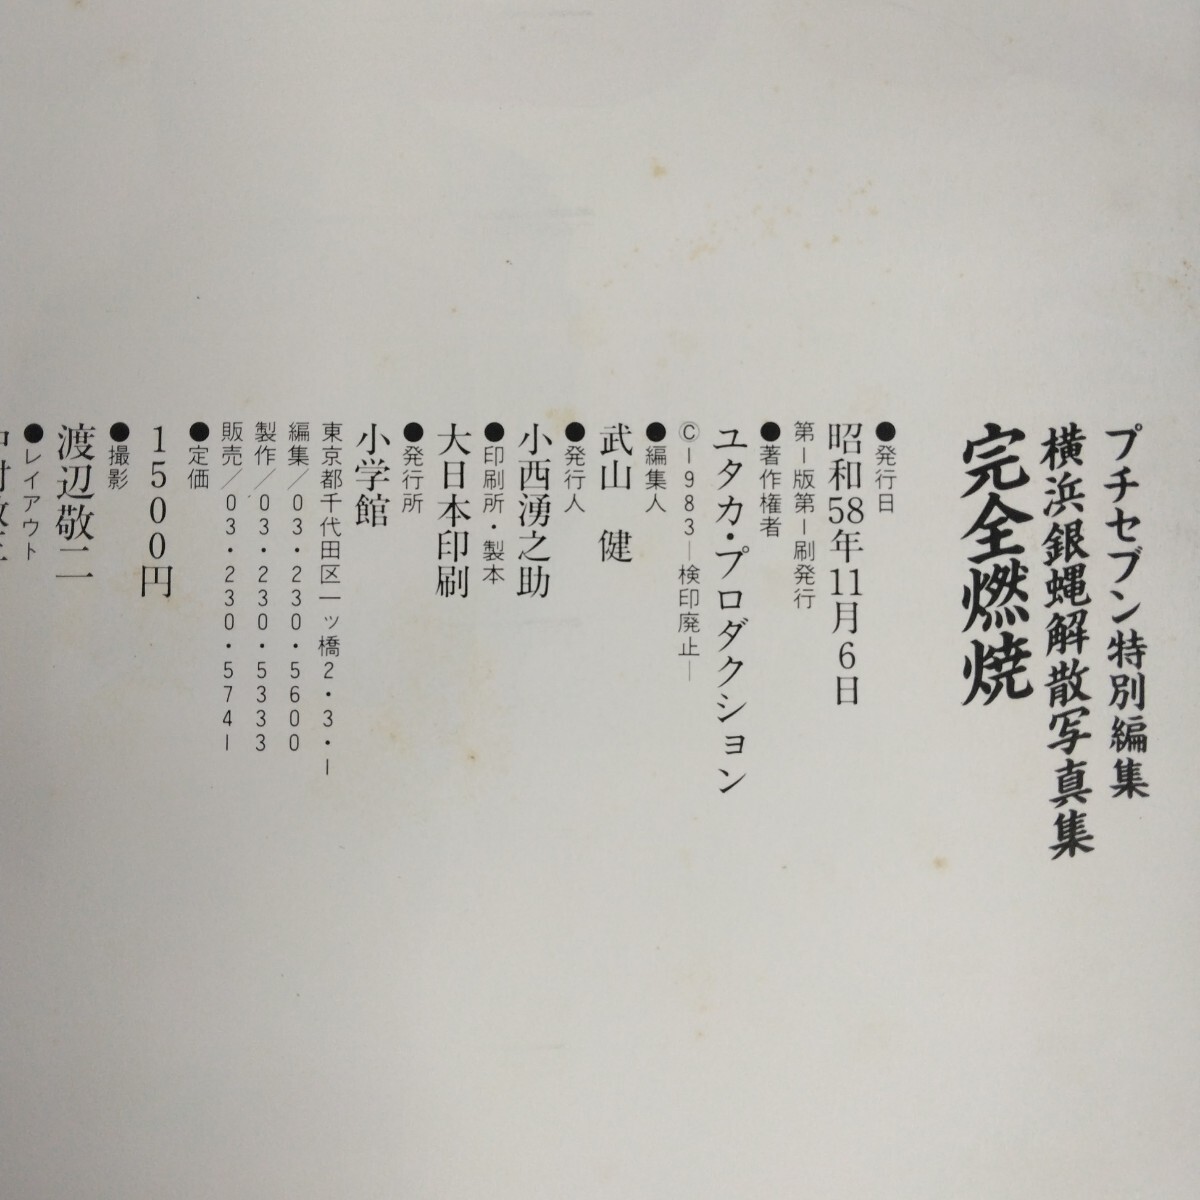 プチセブン特別編集
横浜銀蝿解散写真集
完全燃焼
●発行日
昭和58年11月6日
第一版第一刷発行
●著作権者
ユタカ・プロダクション
©1983―検印廃止―
●編集人
武山 健
●発行人
小西湧之助
●印刷所・製本
大日本印刷
●発行所
小学館
東京都千代田区一ッ橋2・3・1
編集/03・230・5600
製作/03・230・5333
販売/03・230・5741
●定価
1500円
●撮影
渡辺敬二
●レイアウト